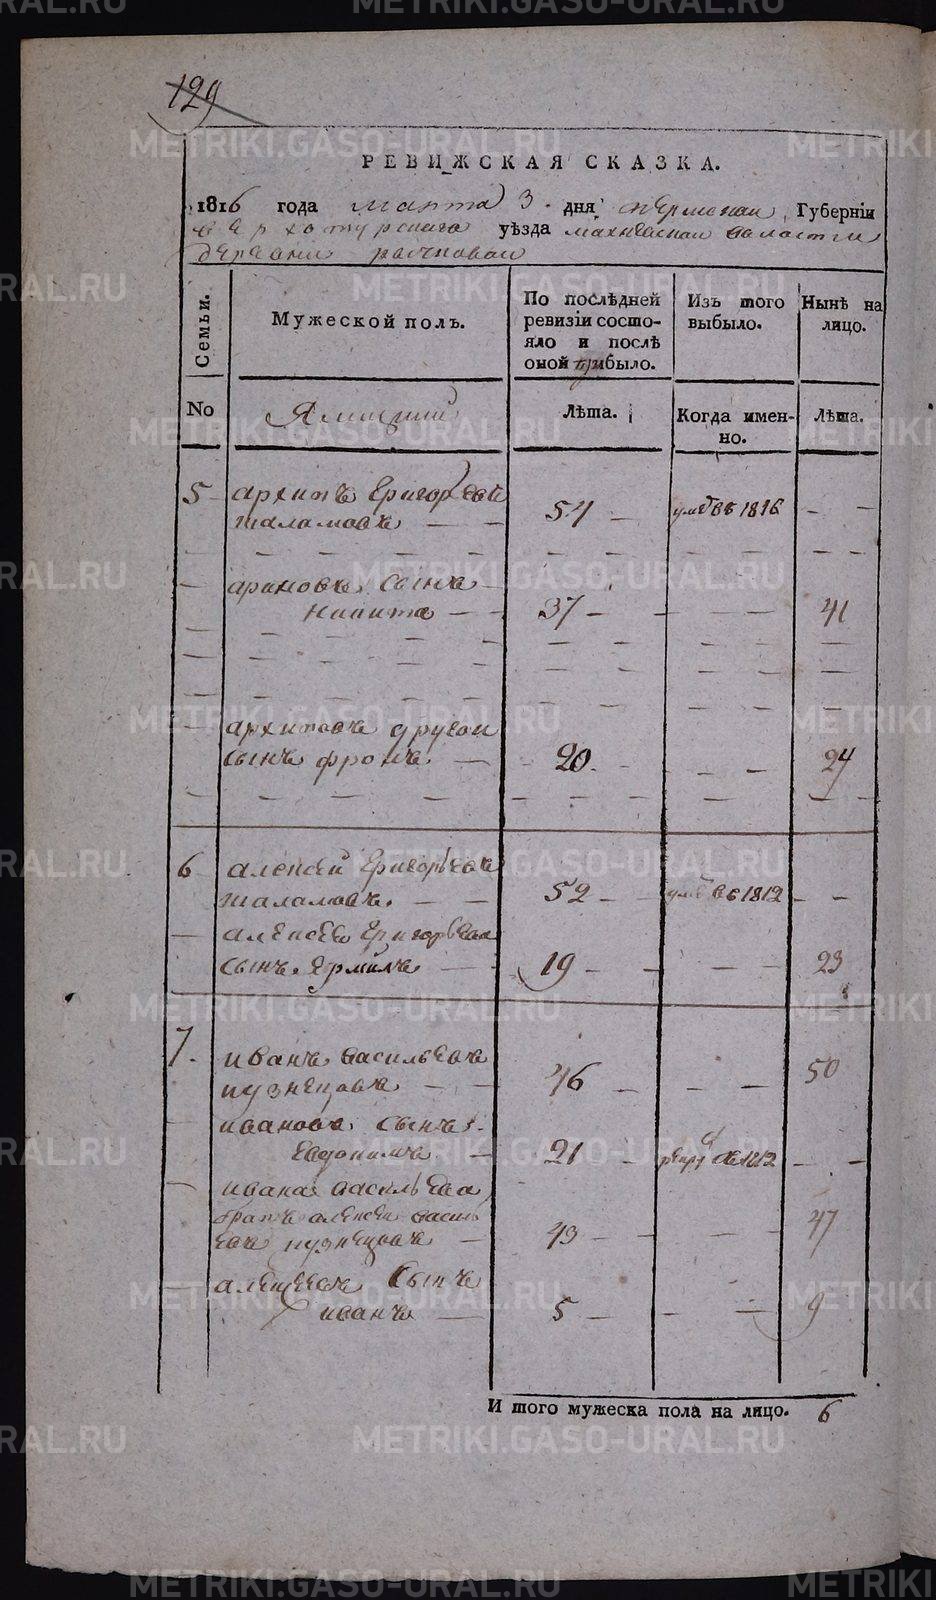 129
РЕВИЖСКАЯ СКАЗКА.
1816 года марта 3. дня пермской Губерніи
верхотурскаго уѣзда махневской валости
деревни
Семьи.
Мужеской полъ.
По послѣдней ревизіи состояло и послѣ оной прибыло.
Изъ того выбыло.
Нынѣ на лицо.
No
Лѣта.
Когда именно.
Лѣта.
5 архипъ Григорьевъ
шаламовъ 54 умре въ 1816
архиповъ сынъ
никита 37 41
архиповъ другои
сынъ фролъ 20. 24
6 алексѣй Григорьевъ
шаламовъ. 52 умре въ 1812
алексѣя Григорьева
сынъ Ермилъ 19 23
7. иванъ васильевъ
кузнецовъ 46 50
ивановъ сынъ
Евдокимъ 21 рекру въ 1812
ивана васильева
братъ алексеи василь
евъ кузнецовъ 43 47
алексеевъ сынъ
иванъ 5 9
И того мужеска пола на лицо. 6
METRIKI.GASO-URAL.RU